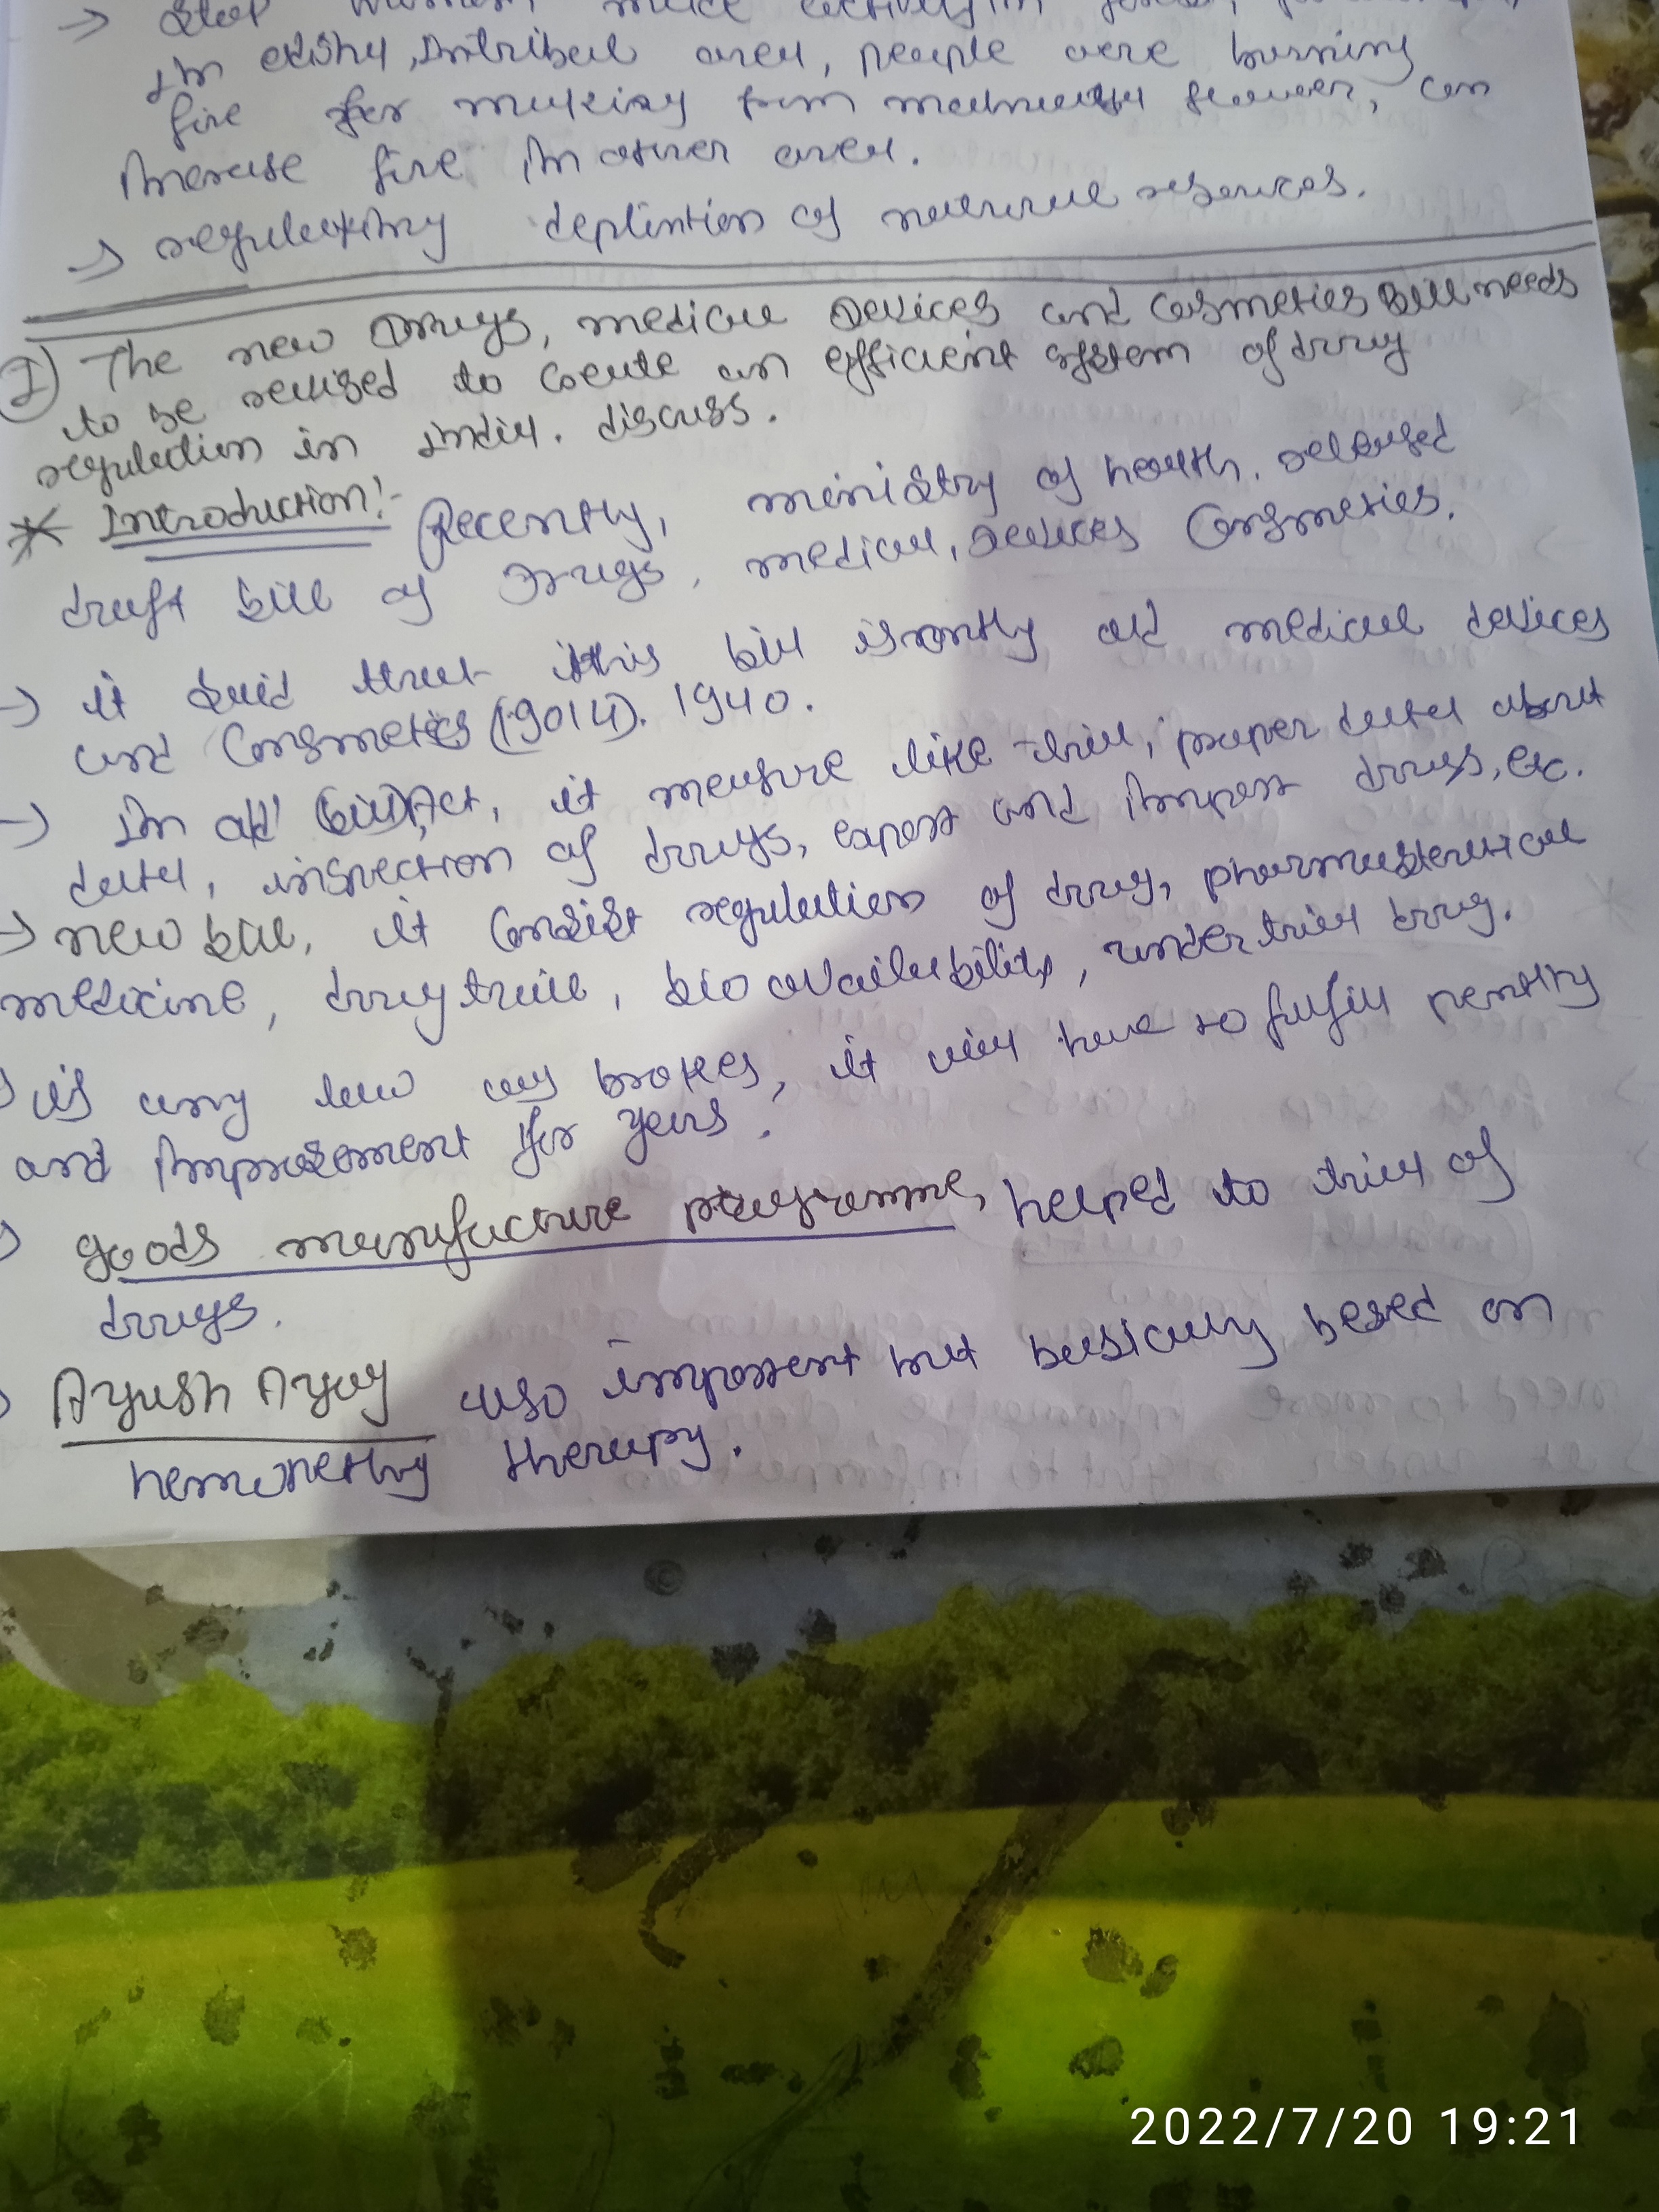 → Stop human made activity in
In odisha, In tribal area, people are burning
fire for making from mahua flower, can
increase fire in other area.
→ regulating depletion of natural resources.
I) The new Drugs, medical Devices and Cosmetics Bill needs
to be revised to create an efficient system of drug
regulation in India. discuss.
* Introduction:- Recently, ministry of health released
draft bill of Drugs, medical, Devices Cosmetics.
→ it said that this bill is only old medical devices
and Cosmetics 1940.
→ In old Act, it measure like trial, proper data about
data, inspection of drugs, export and import drugs, etc.
→ new bill, it consist regulation of drug, pharmaceutical
medicine, drug trail, bio availability, under trial drug.
if any law brokes, it will have to fulfill penalty
and improvement for years.
goods manufacture programme, helped to trial of
drugs.
Ayush also important but basically based on
therapy.
2022/7/20 19:21